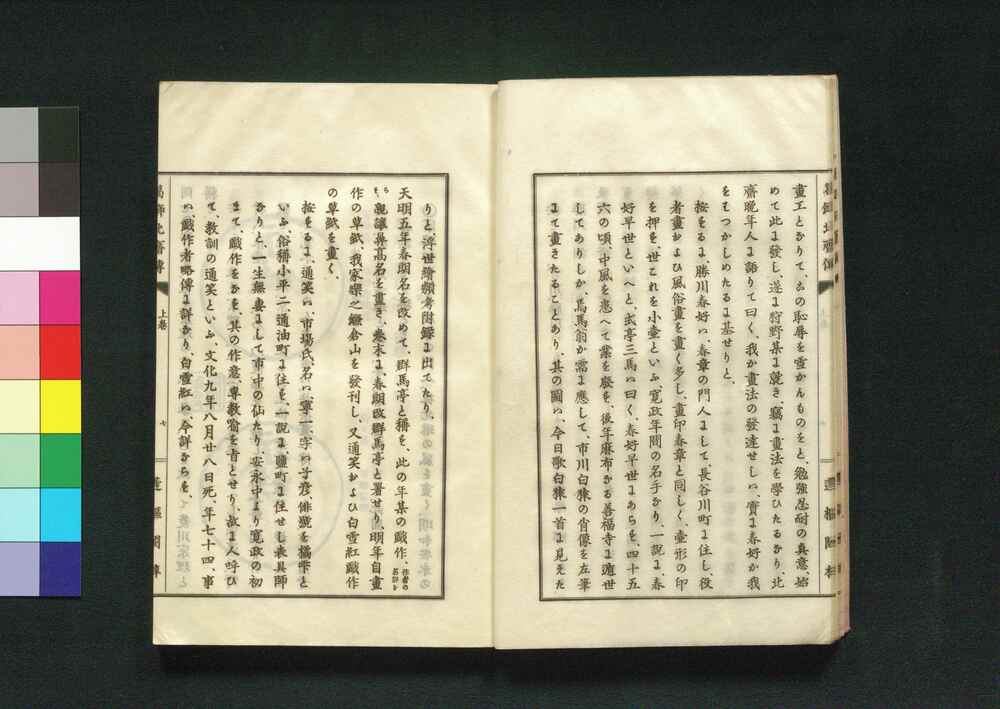 畫工となりて、この恥辱を雪かんものをと、勉強忍耐の真意、始
めて此に發し、遂に狩野某に就き、竊に畫法を學ひたるなり、北
齋晩年人に語りて曰く、我か畫法の發達せしハ、實に春好か我
をはつかしめたるに基せりと、
按するに、勝川春好ハ、春章の門人にして長谷川町に住し、役
者畫および風俗畫を畫く多し、畫印春章と同しく、壷形の印
を押す、世これを小壷といふ、寛政年間の名手なり、一説に、春
好早世といへと、式亭三馬ハ曰く、春好早世にあらす、四十五
六の頃、中風を患へて業を廢す、後年麻布なる善福寺に遁世
してありしか、焉馬翁か需に應して、市川白猿の肖像を左筆
にて畫きたることあり、其の圖ハ、今日歌白猿一首に見えた
りと、浮世繪類考附録に出てたり、
天明五年春朗名を改めて、群馬亭と稱す、此の年某の戯作、作者の名詳なら
す親譲鼻高名を畫き、巻末に、春朗改群馬亭と署せり、明年自畫
作の草紙、我家樂之鎌倉山を發刊し、又通笑および白雪紅戯作
の草紙を畫く、
按するに、通笑ハ、市場氏、名ハ、寧一、字ハ子彦、俳號を橘雫と
いふ、俗稱小平二、通油町に住す、一説に、鹽町に住せし表具師
なりと、一生無妻にして市中の仙たり、安永中より寛政の初
まて、戯作をなす、其の作意、専教諭を旨とせり、故に人呼ひ
て、教訓の通笑といふ、文化九年八月廿八日死、年七十四、事
ハ、戯作者略傳に詳なり、白雪紅ハ、今詳ならす、
葛飾北齋傳
上巻
七
蓬樞閣梓